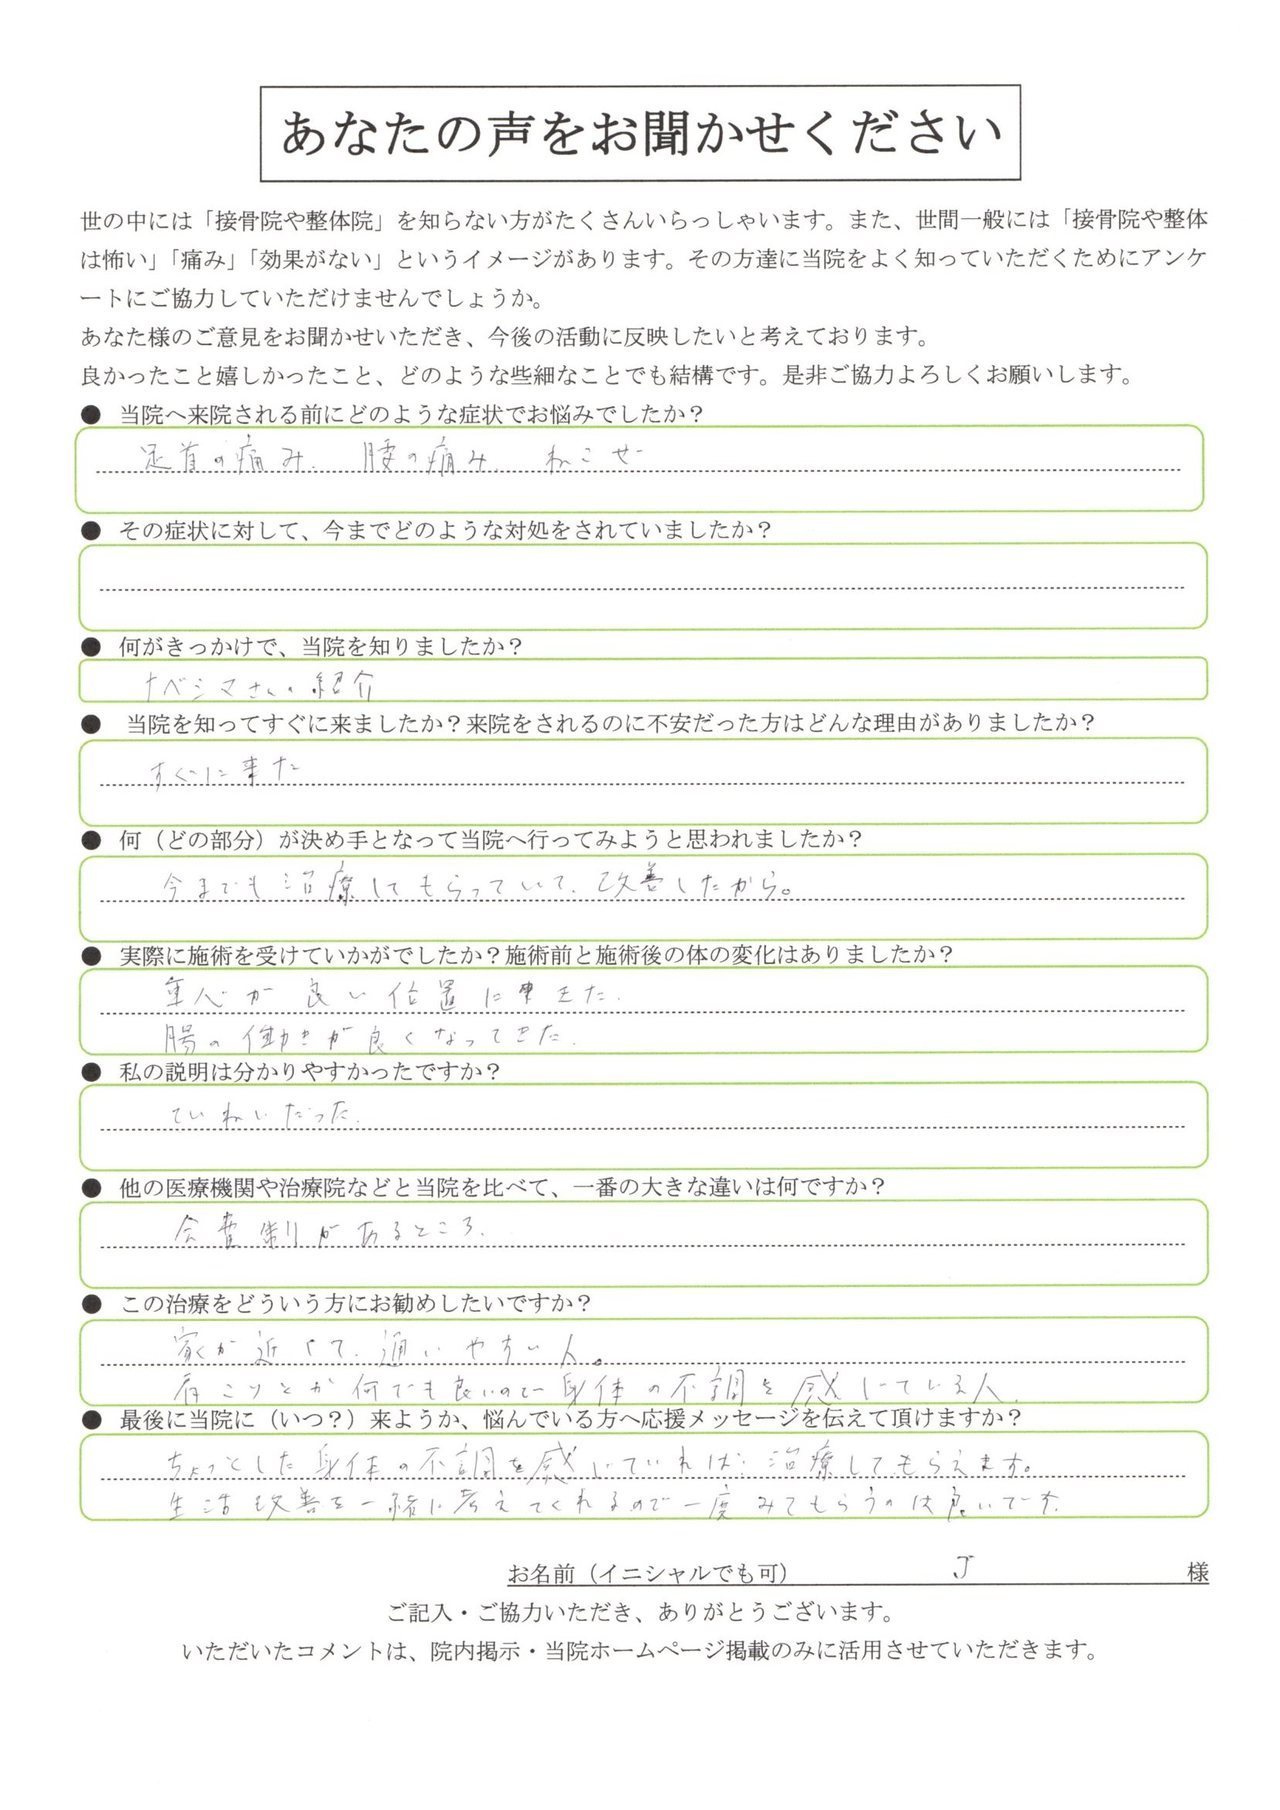 あなたの声をお聞かせください
世の中には「接骨院や整体院」を知らない方がたくさんいらっしゃいます。また、世間一般には「接骨院や整体
は怖い」「痛み」「効果がない」というイメージがあります。その方達に当院をよく知っていただくためにアンケ
ートにご協力していただけませんでしょうか。
あなた様のご意見をお聞かせいただき、今後の活動に反映したいと考えております。
良かったこと嬉しかったこと、どのような些細なことでも結構です。是非ご協力よろしくお願いします。
● 当院へ来院される前にどのような症状でお悩みでしたか？
足首の痛み. 腰の痛み. ねこぜ
● その症状に対して、今までどのような対処をされていましたか？
● 何がきっかけで、当院を知りましたか？
ナベシマさんの紹介
● 当院を知ってすぐに来ましたか？来院をされるのに不安だった方はどんな理由がありましたか？
すぐに来た
● 何（どの部分）が決め手となって当院へ行ってみようと思われましたか？
今までも治療してもらっていて、改善したから。
● 実際に施術を受けていかがでしたか？施術前と施術後の体の変化はありましたか？
重心が良い位置に来た.
腸の働きが良くなってきた.
● 私の説明は分かりやすかったですか？
ていねいだった.
● 他の医療機関や治療院などと当院を比べて、一番の大きな違いは何ですか？
会費制があるところ.
● この治療をどういう方にお勧めしたいですか？
家が近くて、通いやすい人。
肩こりとか何でも良いので身体の不調を感じている人.
● 最後に当院に（いつ？）来ようか、悩んでいる方へ応援メッセージを伝えて頂けますか？
ちょっとした身体の不調を感じていれば、治療してもらえます。
生活改善を一緒に考えてくれるので一度みてもらうのは良いです.
お名前（イニシャルでも可） J 様
ご記入・ご協力いただき、ありがとうございます。
いただいたコメントは、院内掲示・当院ホームページ掲載のみに活用させていただきます。